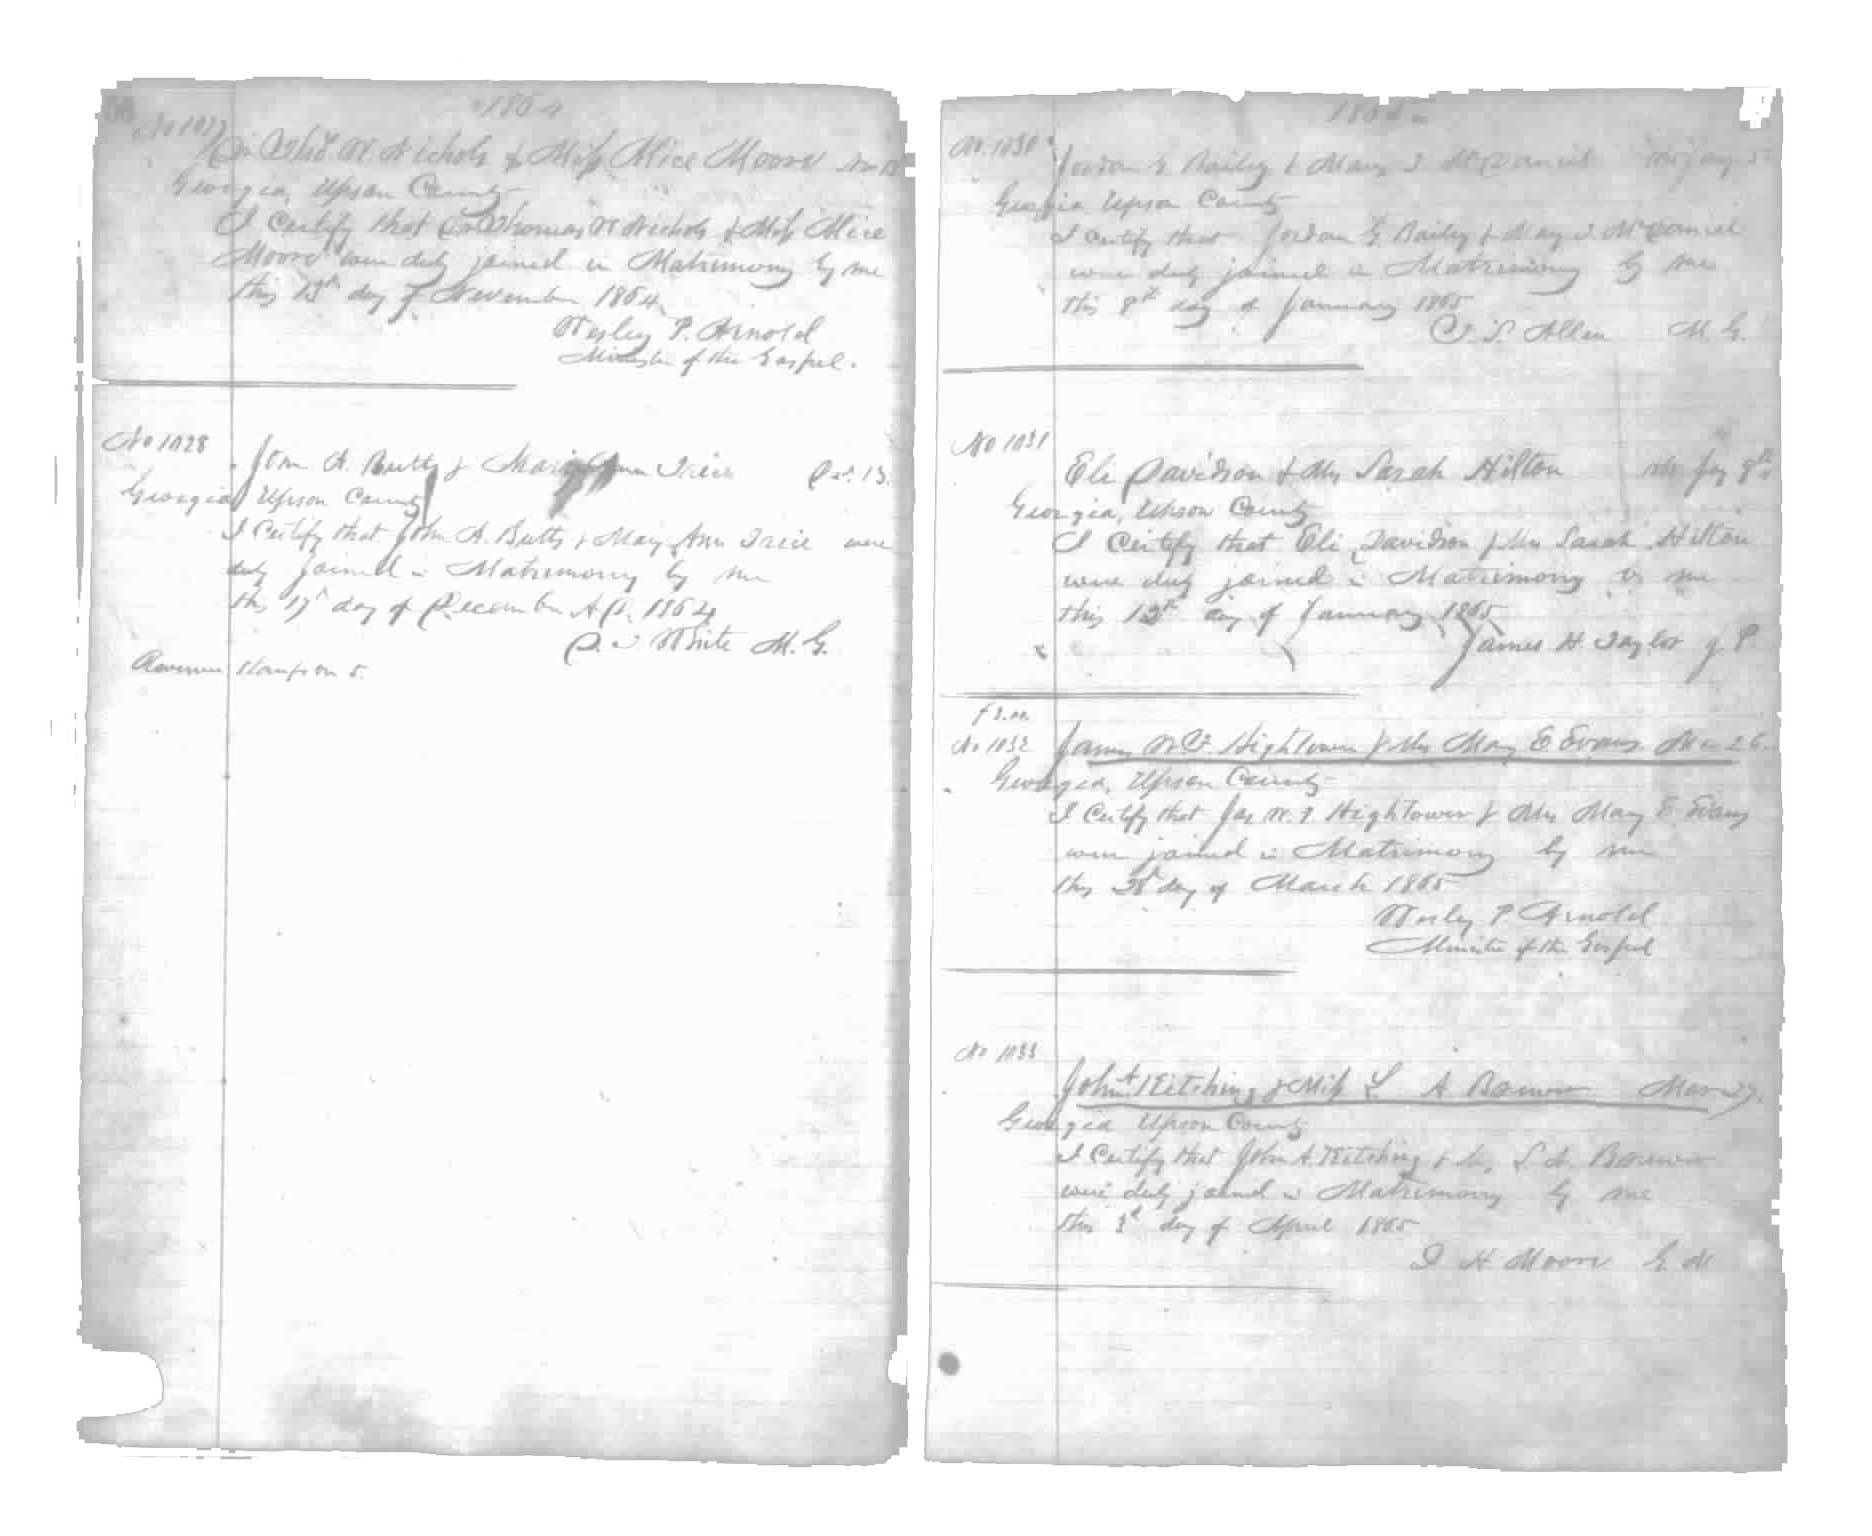 1864
No 1027
Dr Thos. W. Nichols & Miss Alice Moore Nov 13
Georgia, Upson County
I Certify that Dr Thomas W Nichols & Miss Alice
Moore were duly joined in Matrimony by me
this 13th day of November 1864
Wesley P. Arnold
Minister of the Gospel.
No 1028
John A. Butts & Mary Ann Trice Dec. 13.
Georgia Upson County
I Certify that John A. Butts & Mary Ann Trice were
duly joined in Matrimony by me
this 17th day of December A.D. 1864
White M. G.
Revenue Stamp on 5.
1865
No. 1030
Jordan G Bailey & Mary J McDaniel Jany 5
Georgia Upson County
I certify that Jordan G. Bailey & Mary J. McDaniel
were duly joined in Matrimony by me
this 8th day of January 1865
Allen M. G.
No 1031
Eli Davidson & Mrs Sarah Hilton Jany 8th
Georgia, Upson County
I Certify that Eli Davidson & Mrs Sarah Hilton
were duly joined in Matrimony by me
this 12th day of January 1865
James H. Taylor J. P.
No 1032 James W. F. Hightower & Mrs Mary E Evans. Mar 26.
Georgia, Upson County
I Certify that Jas W. F. Hightower & Mrs Mary E. Evans
were joined in Matrimony by me
this 28th day of March 1865
Wesley P. Arnold
Minister of the Gospel
No 1033
John A. Kitching & Miss L A Brown Mar 27.
Georgia Upson County
I Certify that John A. Kitching & L. A. Brown
were duly joined in Matrimony by me
this 3d day of April 1865
J H Moore